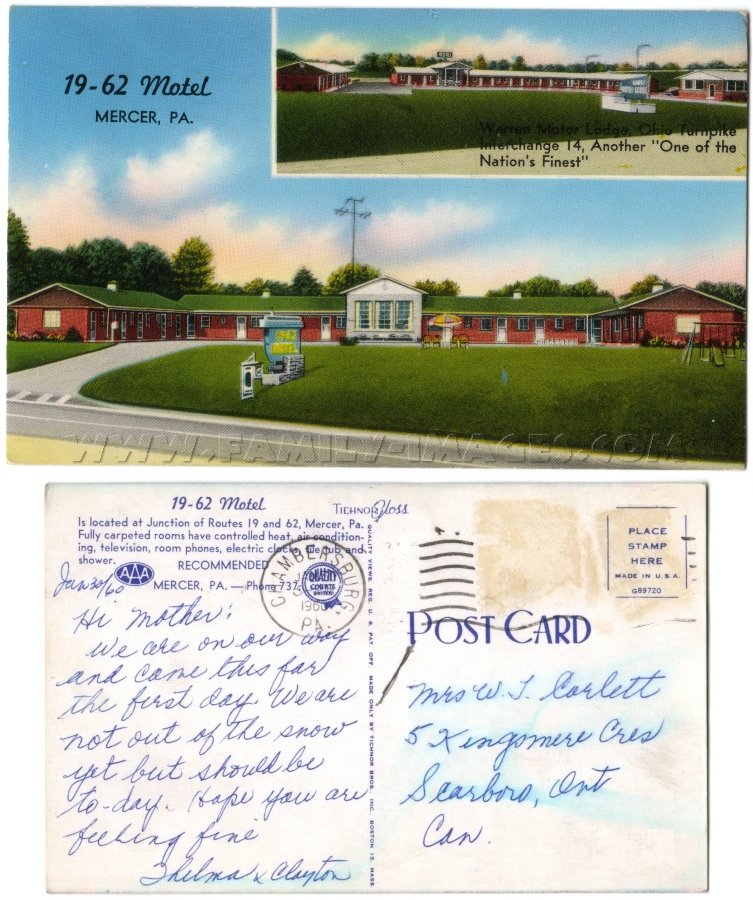 19-62 Motel
MERCER, PA.
MOTEL
Warren Motor Lodge, Ohio Turnpike
Interchange 14, Another "One of the
Nation's Finest"
1962
MOTEL
WWW.FAMILY-IMAGES.COM
19-62 Motel
Is located at Junction of Routes 19 and 62, Mercer, Pa.
Fully carpeted rooms have controlled heat, air condition-
ing, television, room phones, electric clocks, tile tub and
shower.
RECOMMENDED
AAA
MERCER, PA. — Phone 737
TICHNOR Gloss
QUALITY VIEWS REG. U. S. PAT. OFF. MADE ONLY BY TICHNOR BROS. INC. BOSTON 15, MASS.
CHAMBERSBURG,
1960
PA.
QUALITY
COURTS
UNITED
PLACE
STAMP
HERE
MADE IN U.S.A.
G89720
POST CARD
Jan 30/60
Hi Mother:
We are on our way
and came this far
the first day. We are
not out of the snow
yet but should be
to-day. Hope you are
feeling fine
Thelma & Clayton
Mrs W. J. Corlett
5 Kingsmere Cres
Scarboro, Ont
Can.